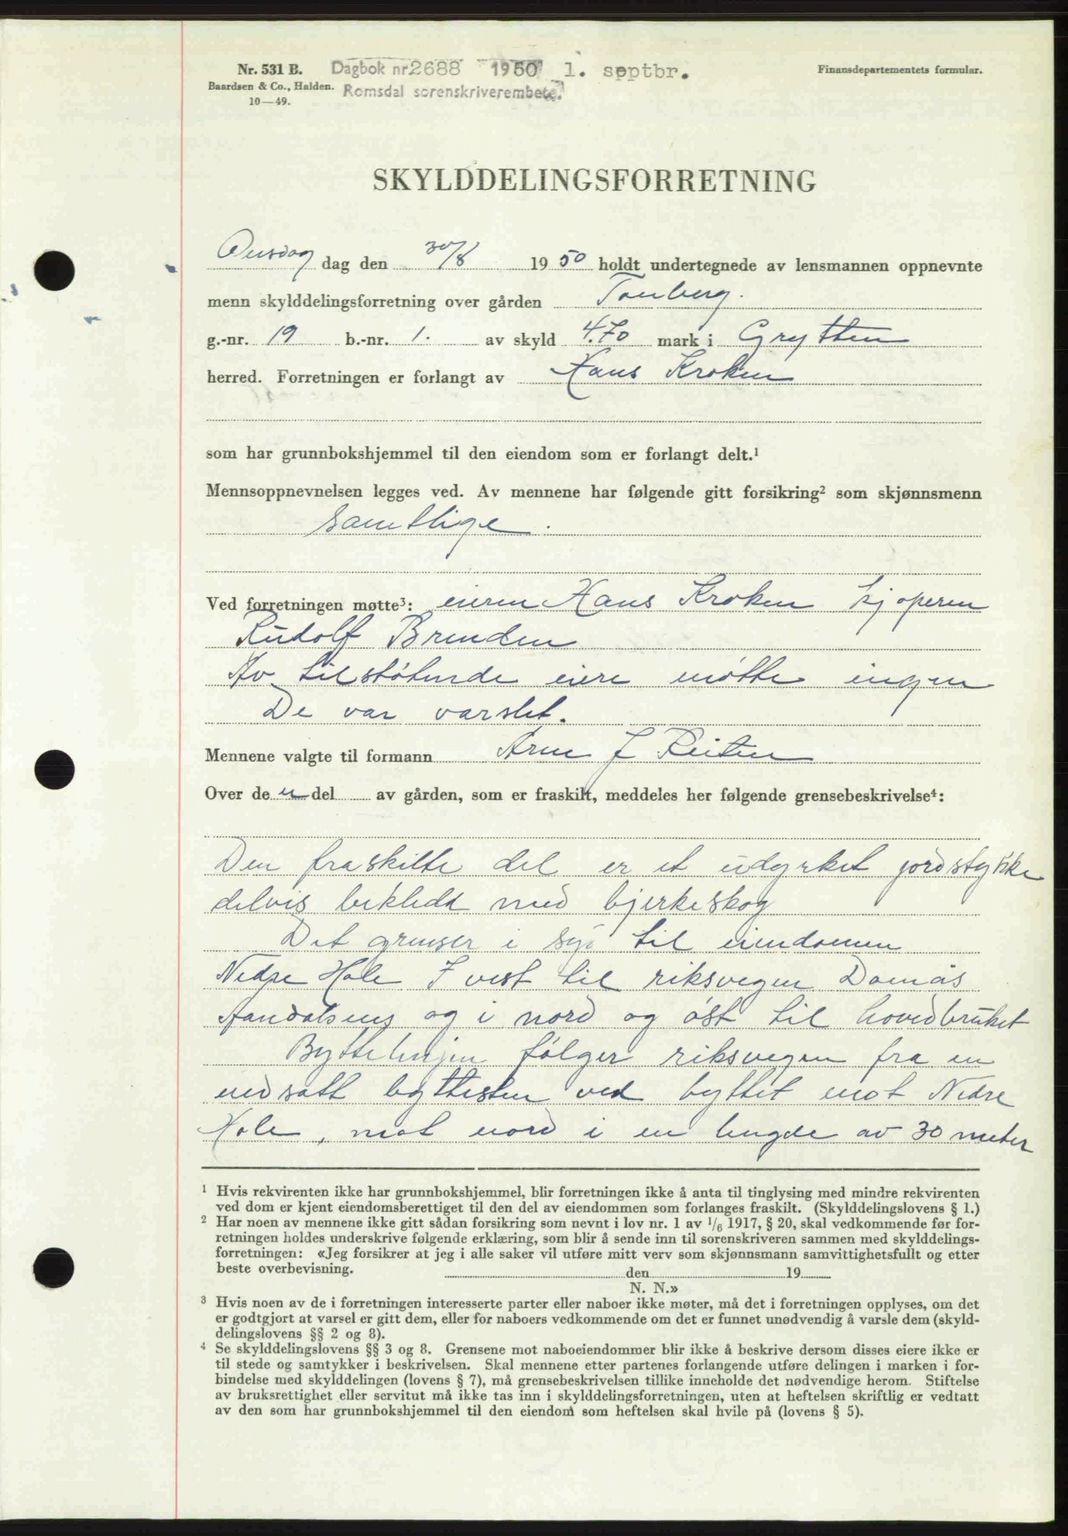 Nr. 531 B.
Baardsen & Co., Halden.
10—49.
Dagbok nr. 2688 1950 1. septbr.
Romsdal sorenskriverembete.
Finansdepartementets formular.
SKYLDDELINGSFORRETNING
Onsdag dag den 30/8 1950 holdt undertegnede av lensmannen oppnevnte
menn skylddelingsforretning over gården Tomberg.
g.-nr. 19 b.-nr. 1. av skyld 4.70 mark i Grytten
herred. Forretningen er forlangt av Hans Kroken
som har grunnbokshjemmel til den eiendom som er forlangt delt.¹
Mennsoppnevnelsen legges ved. Av mennene har følgende gitt forsikring² som skjønnsmenn
samtlige.
Ved forretningen møtte³: eieren Hans Kroken kjøperen
Rudolf Brenden
Av tilstøtende eiere møtte ingen
De var varslet.
Mennene valgte til formann Arne J Reiten
Over de n del av gården, som er fraskilt, meddeles her følgende grensebeskrivelse⁴:
Den fraskilte del er et udyrket jordstykke
delvis bekledt med bjerkeskog
Det grenser i syd til eiendommen
Nedre Hole I vest til riksvegen Domås
Aandalsnes og i nord og øst til hovedbruket
Byttelinjen følger riksvegen fra en
nedsatt byttesten ved byttet mot Nedre
Hole, mot nord i en lengde av 30 meter
¹ Hvis rekvirenten ikke har grunnbokshjemmel, blir forretningen ikke å anta til tinglysing med mindre rekvirenten
ved dom er kjent eiendomsberettiget til den del av eiendommen som forlanges fraskilt. (Skylddelingslovens § 1.)
² Har noen av mennene ikke gitt sådan forsikring som nevnt i lov nr. 1 av 1/6 1917, § 20, skal vedkommende før for-
retningen holdes underskrive følgende erklæring, som blir å sende inn til sorenskriveren sammen med skylddelings-
forretningen: «Jeg forsikrer at jeg i alle saker vil utføre mitt verv som skjønnsmann samvittighetsfullt og etter
beste overbevisning. den 19
N. N.»
³ Hvis noen av de i forretningen interesserte parter eller naboer ikke møter, må det i forretningen opplyses, om det
er godtgjort at varsel er gitt dem, eller for naboers vedkommende om det er funnet unødvendig å varsle dem (skyld-
delingslovens §§ 2 og 8).
⁴ Se skylddelingslovens §§ 3 og 8. Grensene mot naboeiendommer blir ikke å beskrive dersom disses eiere ikke er
til stede og samtykker i beskrivelsen. Skal mennene etter partenes forlangende utføre delingen i marken i for-
bindelse med skylddelingen (lovens § 7), må grensebeskrivelsen tillike inneholde det nødvendige herom. Stiftelse
av bruksrettighet eller servitut må ikke tas inn i skylddelingsforretningen, uten at heftelsen skriftlig er vedtatt
av den som har grunnbokshjemmel til den eiendom som heftelsen skal hvile på (lovens § 5).